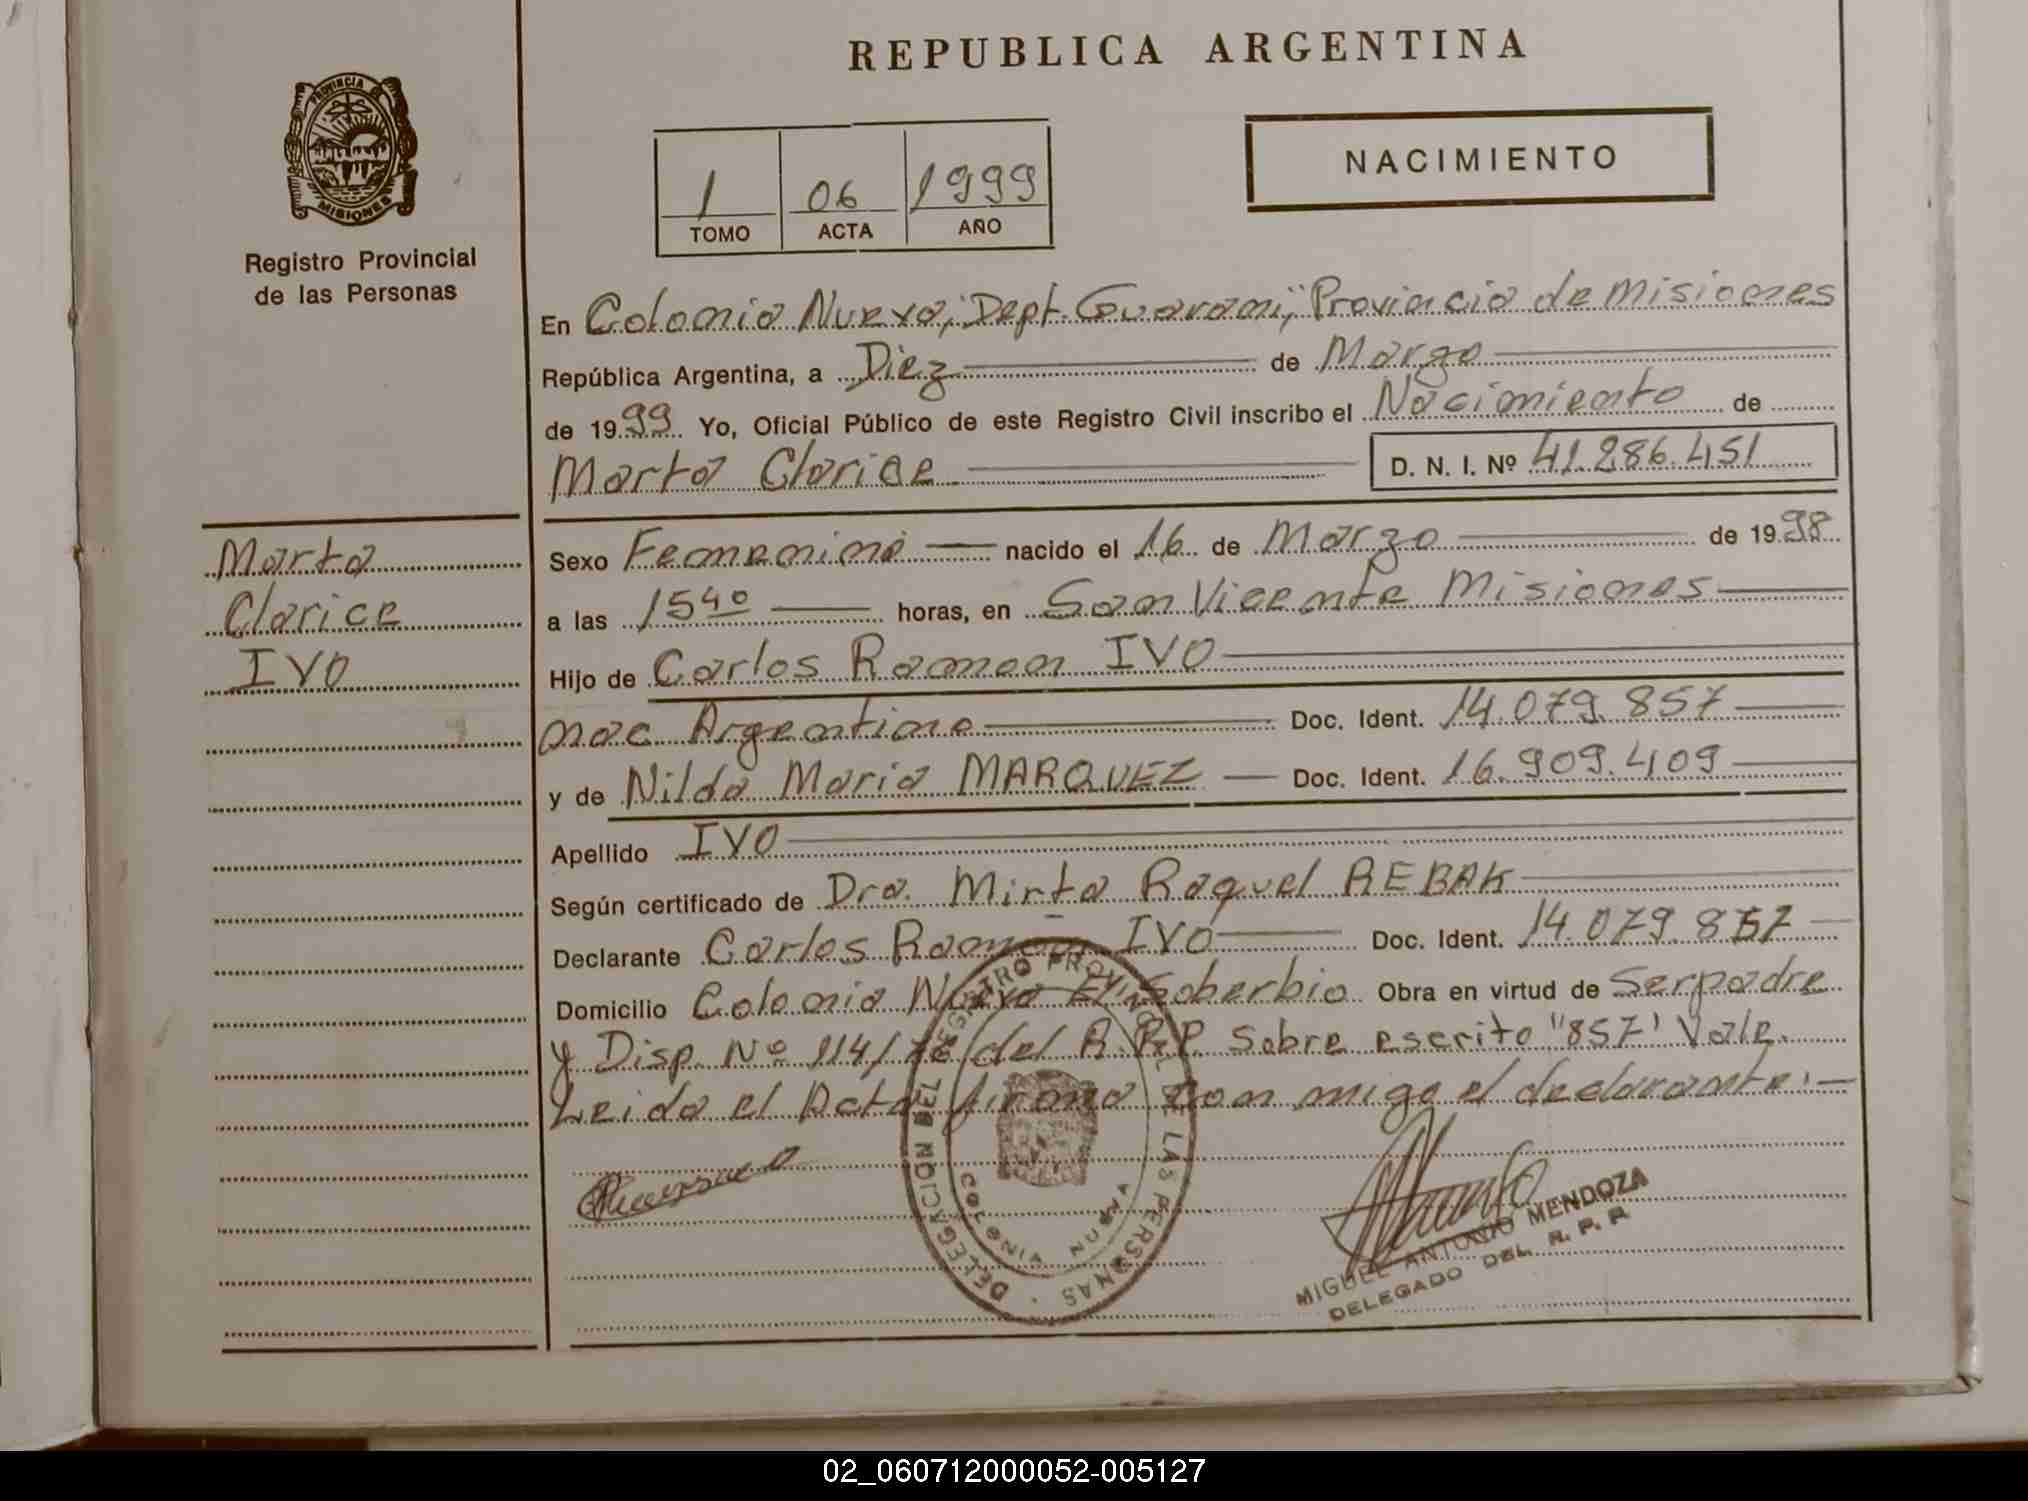 REPUBLICA ARGENTINA
PROVINCIA DE
MISIONES
Registro Provincial
de las Personas
1 06 1999
TOMO ACTA AÑO
NACIMIENTO
En Colonia Nueva, Dept. Guarani, Provincia de Misiones
República Argentina, a Diez de Marzo
de 1999 Yo, Oficial Público de este Registro Civil inscribo el Nacimiento de
Marta Clarice D. N. I. Nº 41.286.451
Marta
Clarice
IVO
Sexo Femenino nacido el 16 de Marzo de 1998
a las 15 40 horas, en San Vicente Misiones
Hijo de Carlos Ramon IVO
nac Argentino Doc. Ident. 14.079.857
y de Nilda Maria MARQUEZ Doc. Ident. 16.909.409
Apellido IVO
Según certificado de Dra. Mirta Raquel REBAK
Declarante Carlos Ramon IVO Doc. Ident. 14.079.857
Domicilio Colonia Nueva El Soberbio Obra en virtud de Ser padre
y Disp. Nº 114/78 del R.P.P. Sobre escrito "857" Vale.
Leida el Acta firma con migo el declarante.
DELEGACION DEL REGISTRO PROVINCIAL DE LAS PERSONAS
COLONIA NUEVA
MIGUEL ANTONIO MENDOZA
DELEGADO DEL R. P. P.
02_060712000052-005127